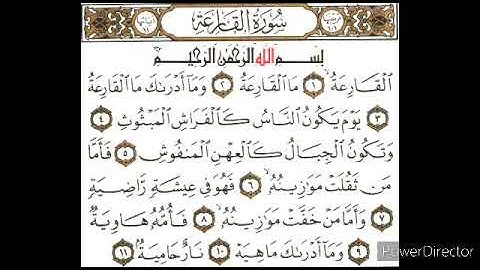 سُورَةُ القَارِعَة
بِسْمِ اللهِ الرَّحْمٰنِ الرَّحِيمِ
الْقَارِعَةُ ١ مَا الْقَارِعَةُ ٢ وَمَا أَدْرَىٰكَ مَا الْقَارِعَةُ
٣ يَوْمَ يَكُونُ النَّاسُ كَالْفَرَاشِ الْمَبْثُوثِ ٤
وَتَكُونُ الْجِبَالُ كَالْعِهْنِ الْمَنْفُوشِ ٥ فَأَمَّا
مَن ثَقُلَتْ مَوَٰزِينُهُۥ ٦ فَهُوَ فِي عِيشَةٍ رَّاضِيَةٍ
٧ وَأَمَّا مَنْ خَفَّتْ مَوَٰزِينُهُۥ ٨ فَأُمُّهُۥ هَاوِيَةٌ
٩ وَمَا أَدْرَىٰكَ مَا هِيَهْ ١٠ نَارٌ حَامِيَةٌ ١١
PowerDirector